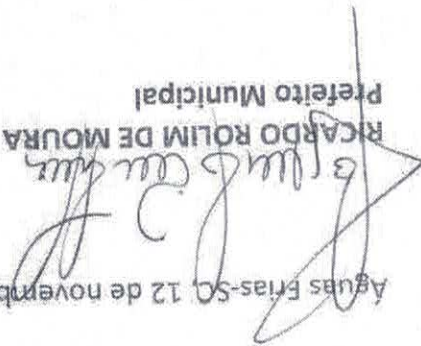 Águas Frias-SC, 12 de novemb
RICARDO ROLIM DE MOURA
Prefeito Municipal